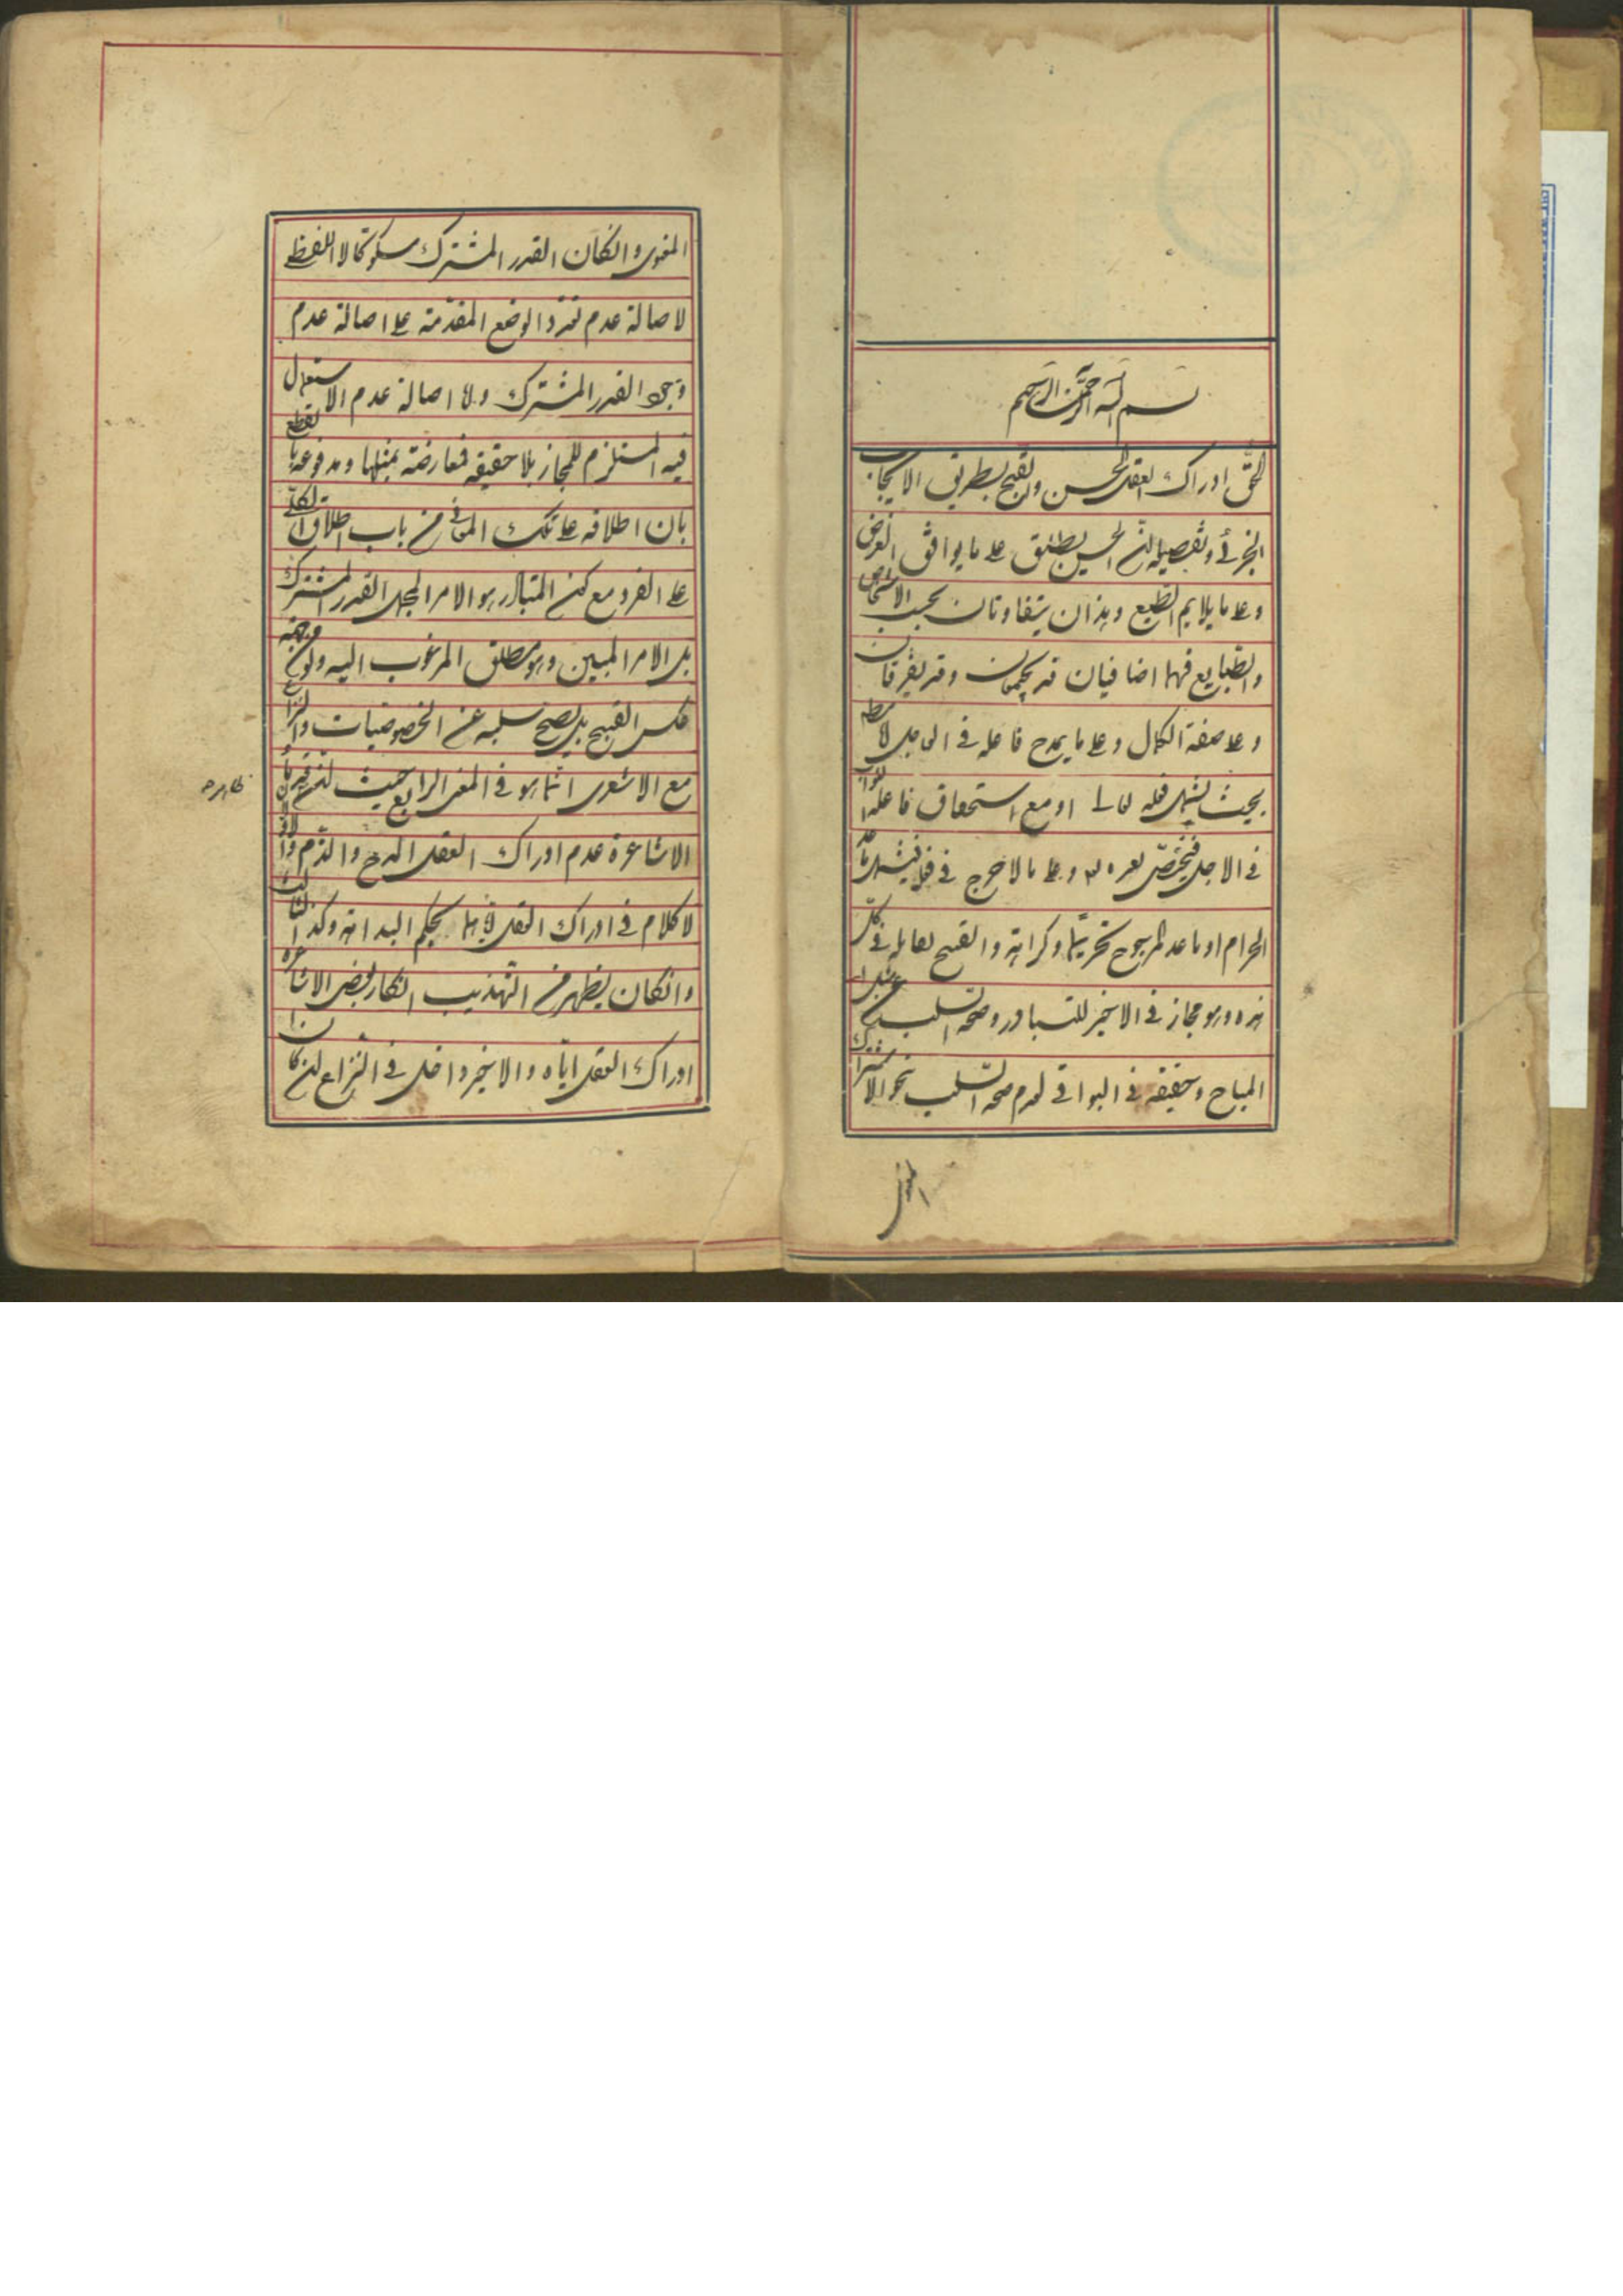 بسم الله الرحمن الرحيم
الحق ادراك العقل الحسن والقبح بطريق الايجاب
الجزئى وتفصيله ان الحسن يطلق على ما يوافق الغرض
وعلى ما يلايم الطبع وهذان يتفاوتان بحسب الاشخاص
والطبايع فهما اضافيان قد يجتمعان وقد يفترقان
وعلى صفة الكمال وعلى ما يمدح فاعله فى العاجل
بحيث يشمل فعله تعالى او مع استحقاق فاعله الثواب
فى الاجل فيختص بغيره وعلى ما لا حرج فى فعله فيشمل ما عدا
الحرام او ما عدا المرجوح تحريما وكراهة والقبيح يقابله فى كل
هذه وهو مجاز فى الاخير للتبادر وصحة السلب عن مثل
المباح وحقيقة فى البواقى لعدم صحة السلب نحو الاشتراك
المعنوى
المعنوى وانكان القدر المشترك سلوكا لا اللفظى
لاصالة عدم تعدد الوضع المقدمة على اصالة عدم
القدر المشترك ولا اصالة عدم الاستعمال
فيه المستلزم للمجاز بلا حقيقة فمعارضة بمثلها ومدفوعة
بان اطلاقه على تلك المعانى من باب اطلاق الكلى
على الفرد مع كون المتبادر هو الامر المجمل القدر المشترك
بل الامر المبين وهو مطلق المرغوب اليه ولو من جهة
عكس القبيح بل يصح سلبه عن الخصوصيات والنزاع
مع الاشعرى انما هو فى المعنى الرابع حيث
ظاهره
الاشاعرة عدم ادراك العقل المدح والذم
لا كلام فى ادراك العقل بحكم البداهة وكذا الثالث
وانكان يظهر من التهذيب انكار بعض الاشاعرة
ادراك العقل اياه والاخير داخل فى النزاع ان كان